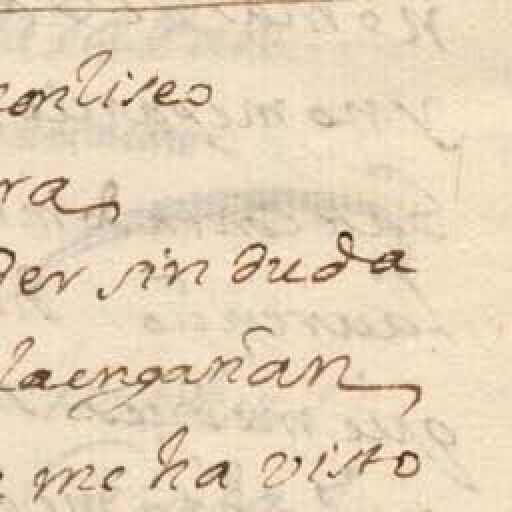 conliseo
ra
der sin duda
la engañan
me ha visto